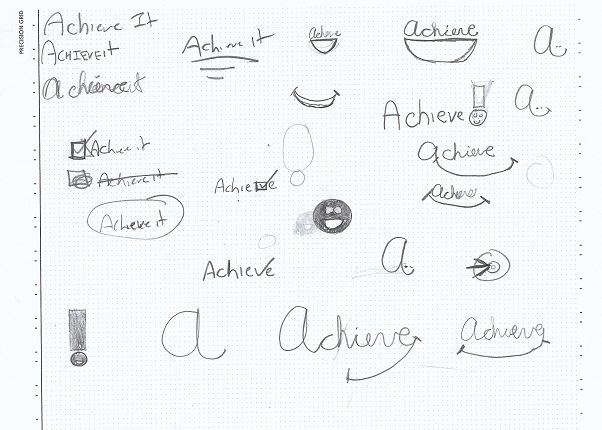 PRECISION GRID
Achieve It
ACHIEVEit
achieveit
Achieve it
Achieve
achieve
a..
a..
Achieve
Achieve it
Achieve it
Achieve
achieve
Achieve
Achieve it
Achieve
a..
a
Achieve
achieve